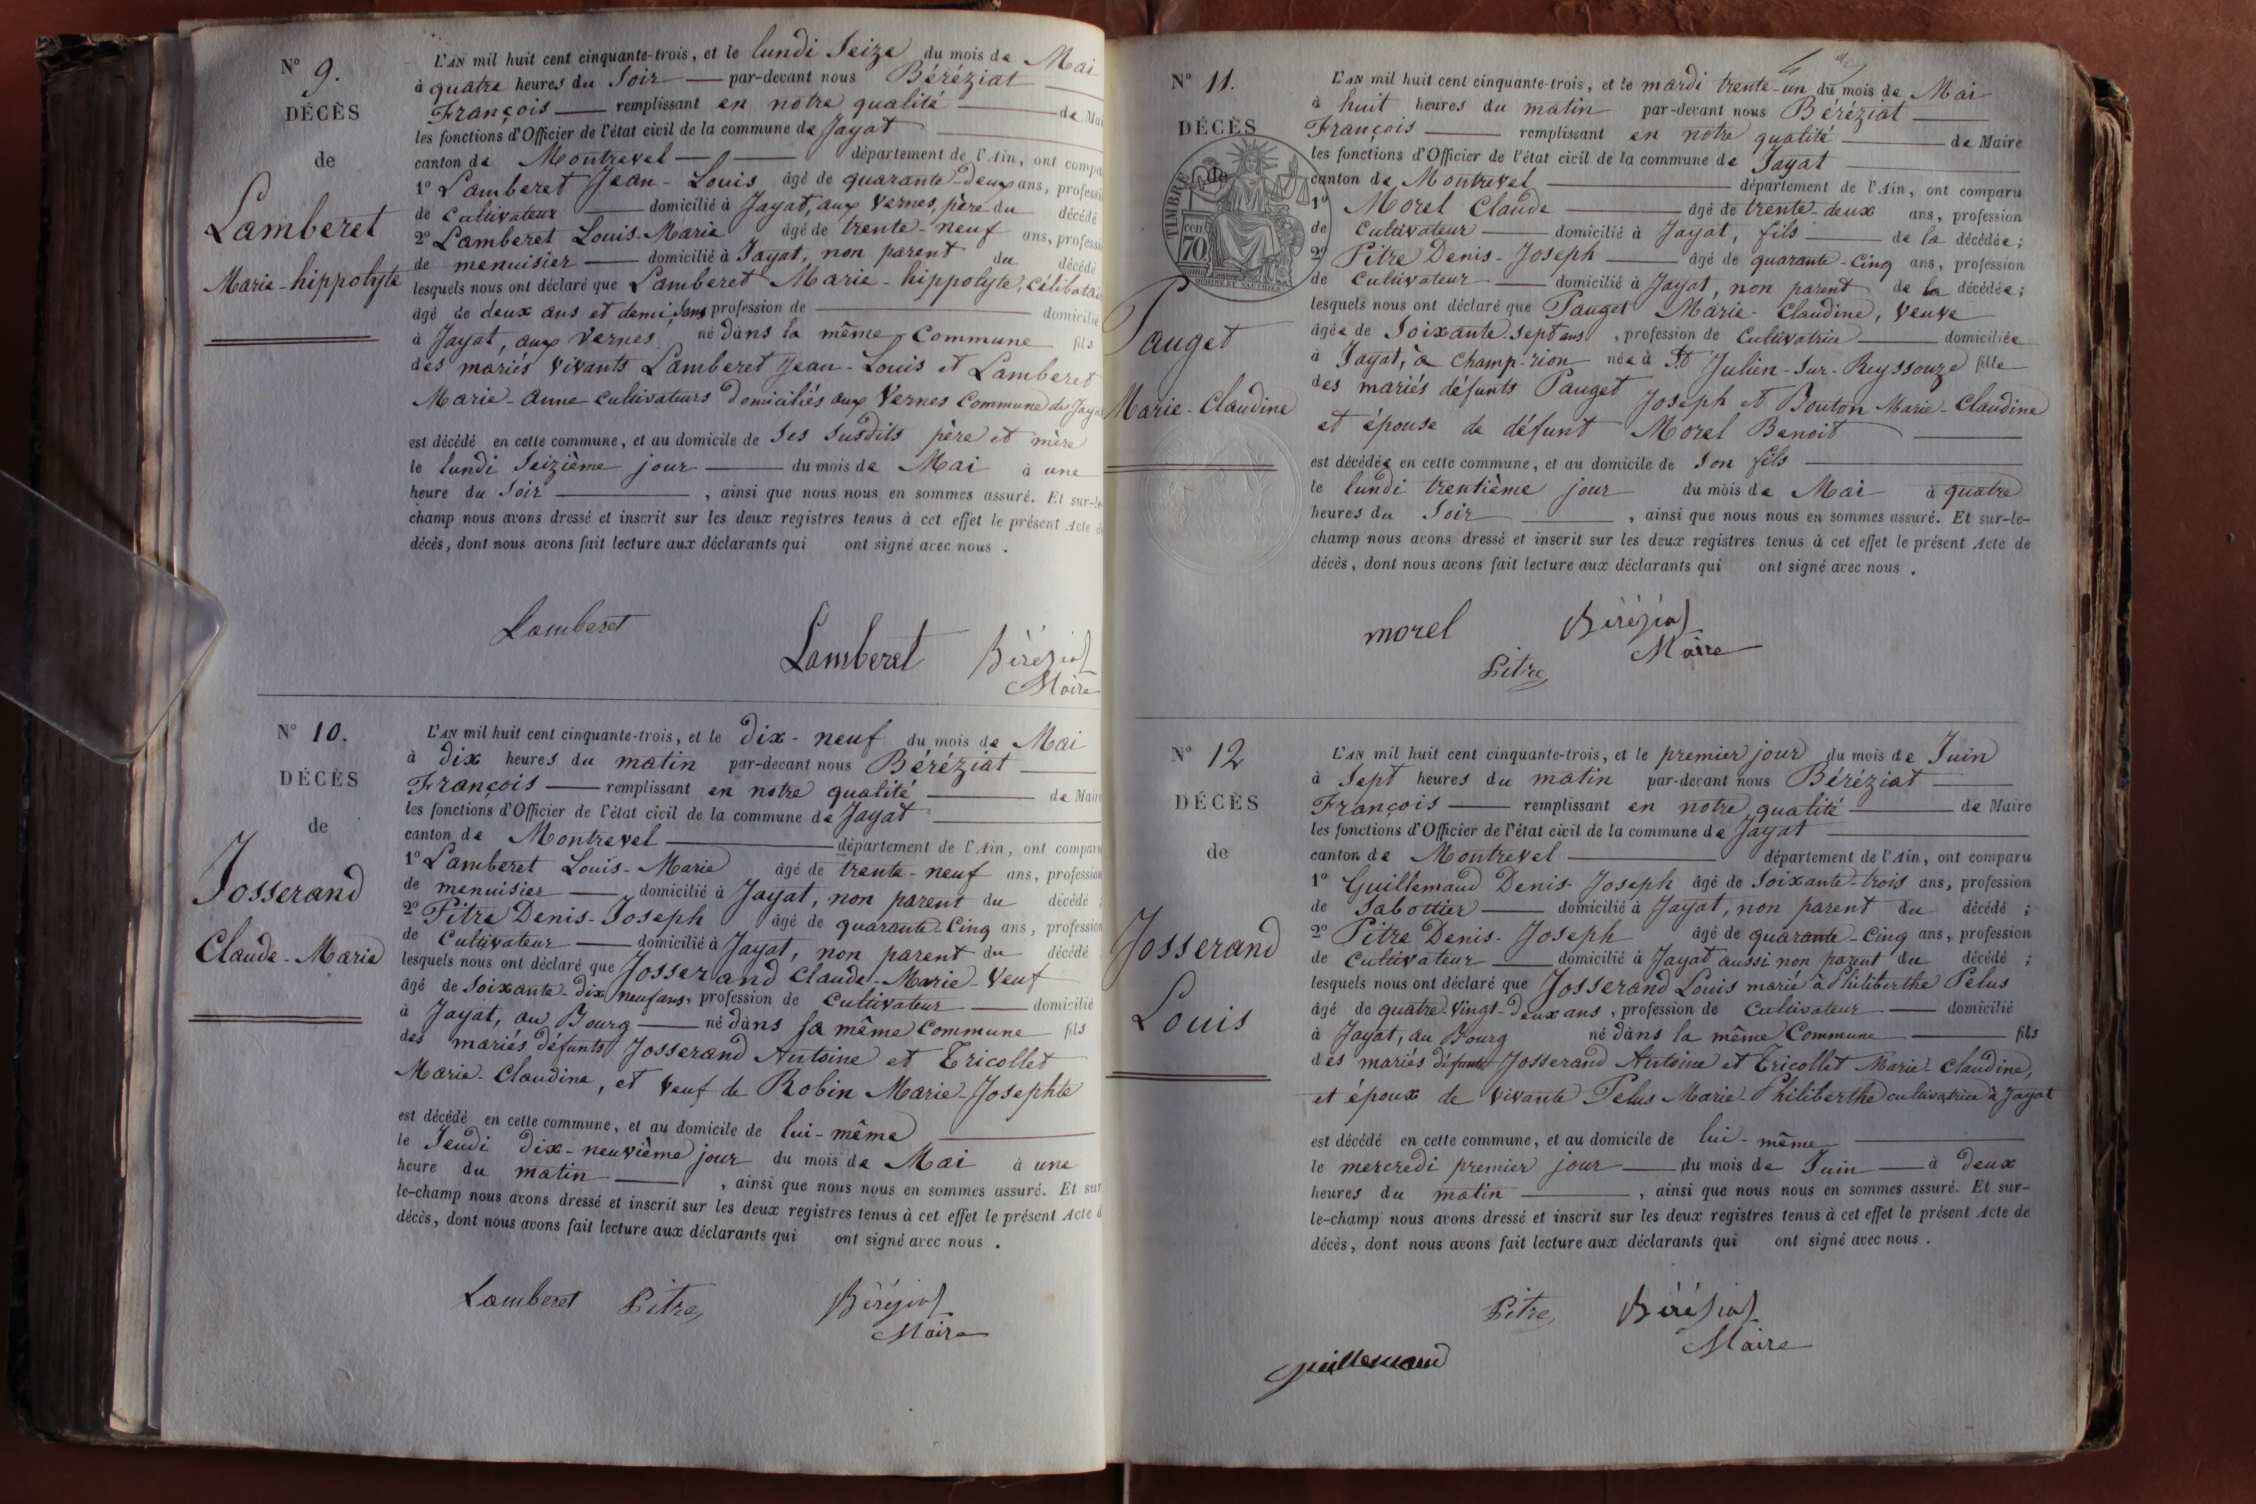 N° 9.
DÉCÈS
de
Lamberet
Marie-hippolyte
L'AN mil huit cent cinquante-trois, et le lundi Seize du mois de Mai
à quatre heures du Soir — par-devant nous Béréziat
François — remplissant en notre qualité — de Mai
les fonctions d'Officier de l'état civil de la commune de Jayat
canton de Montrevel — département de l'Ain, ont compa
1° Lamberet Jean-Louis âgé de quarante-deux ans, professi
de cultivateur — domicilié à Jayat, aux Vernes, père du décédé
2° Lamberet Louis-Marie âgé de trente-neuf ans, professi
de menuisier — domicilié à Jayat, non parent du décédé
lesquels nous ont déclaré que Lamberet Marie-hippolyte, Célibatai
âgé de deux ans et demi, Sans profession de — domicilié
à Jayat, aux Vernes, né dans la même Commune fils
des mariés vivants Lamberet Jean-Louis et Lamberet
Marie-Anne cultivateurs domiciliés aux Vernes Commune de Jaya
est décédé en cette commune, et au domicile de Ses Susdits père et mère
le lundi Seizième jour — du mois de Mai à une
heure du Soir — , ainsi que nous nous en sommes assuré. Et sur-le-
champ nous avons dressé et inscrit sur les deux registres tenus à cet effet le présent Acte de
décès, dont nous avons fait lecture aux déclarants qui ont signé avec nous .
Lamberet
Lamberet Béréziat
Maire
N° 10.
DÉCÈS
de
Josserand
Claude-Marie
L'AN mil huit cent cinquante-trois, et le dix-neuf du mois de Mai
à dix heures du matin par-devant nous Béréziat —
François — remplissant en notre qualité — de Maire
les fonctions d'Officier de l'état civil de la commune de Jayat —
canton de Montrevel — département de l'Ain, ont comparu
1° Lamberet Louis-Marie âgé de trente-neuf ans, profession
de menuisier — domicilié à Jayat, non parent du décédé ;
2° Pitre Denis-Joseph âgé de quarante-Cinq ans, profession
de Cultivateur — domicilié à Jayat, non parent du décédé
lesquels nous ont déclaré que Josserand Claude-Marie-Veuf
âgé de Soixante-dix neuf ans, profession de Cultivateur — domicilié
à Jayat, au Bourg — né dans la même Commune fils
des mariés défunts Josserand Antoine et Tricollet
Marie-Claudine, et veuf de Robin Marie-Josephte
est décédé en cette commune, et au domicile de lui-même —
le Jeudi dix-neuvième jour du mois de Mai à une
heure du matin — , ainsi que nous nous en sommes assuré. Et sur
le-champ nous avons dressé et inscrit sur les deux registres tenus à cet effet le présent Acte d
décès, dont nous avons fait lecture aux déclarants qui ont signé avec nous .
Lamberet Pitre Béréziat
Maire
N° 11.
DÉCÈS
de
TIMBRE
cen
70
Pauget
Marie-Claudine
L'AN mil huit cent cinquante-trois, et le mardi trente-un du mois de Mai
à huit heures du matin par-devant nous Béréziat —
François — remplissant en notre qualité — de Maire
les fonctions d'Officier de l'état civil de la commune de Jayat —
canton de Montrevel — département de l'Ain, ont comparu
1° Morel Claude — âgé de trente-deux ans, profession
de Cultivateur — domicilié à Jayat, fils — de la décédée ;
2° Pitre Denis-Joseph — âgé de quarante-Cinq ans, profession
de Cultivateur — domicilié à Jayat, non parent de la décédée ;
lesquels nous ont déclaré que Pauget Marie-Claudine, Veuve
âgée de Soixante-Sept ans , profession de Cultivatrice — domiciliée
à Jayat, à Champ-rion née à St Julien-Sur-Reyssouze fille
des mariés défunts Pauget Joseph et Bouton Marie-Claudine
et épouse de défunt Morel Benoit —
est décédée en cette commune, et au domicile de Son fils —
le lundi trentième jour du mois de Mai à quatre
heures du Soir — , ainsi que nous nous en sommes assuré. Et sur-le-
champ nous avons dressé et inscrit sur les deux registres tenus à cet effet le présent Acte de
décès, dont nous avons fait lecture aux déclarants qui ont signé avec nous .
morel Béréziat
Maire
Pitre
N° 12
DÉCÈS
de
Josserand
Louis
L'AN mil huit cent cinquante-trois, et le premier jour du mois de Juin
à Sept heures du matin par-devant nous Béréziat —
François — remplissant en notre qualité — de Maire
les fonctions d'Officier de l'état civil de la commune de Jayat —
canton de Montrevel — département de l'Ain, ont comparu
1° Guillemaud Denis-Joseph âgé de Soixante-trois ans, profession
de Sabottier — domicilié à Jayat, non parent du décédé ;
2° Pitre Denis-Joseph âgé de quarante-Cinq ans, profession
de Cultivateur — domicilié à Jayat aussi non parent du décédé ;
lesquels nous ont déclaré que Josserand Louis marié à Philiberthe Pelus
âgé de quatre-Vingt-Deux ans , profession de Cultivateur — domicilié
à Jayat, au Bourg né dans la même Commune — fils
des mariés défunts Josserand Antoine et Tricollet Marie-Claudine,
et époux de vivante Pelus Marie-Philiberthe cultivatrice à Jayat
est décédé en cette commune, et au domicile de lui-même —
le mercredi premier jour — du mois de Juin — à deux
heures du matin — , ainsi que nous nous en sommes assuré. Et sur-
le-champ nous avons dressé et inscrit sur les deux registres tenus à cet effet le présent Acte de
décès, dont nous avons fait lecture aux déclarants qui ont signé avec nous .
Pitre Béréziat
Maire
guillemaud